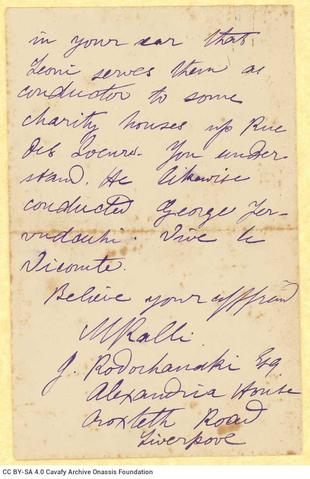 in your ear that
Leoni serves them as
conductor to some
charity houses up Rue
des Soeurs. You under
stand. He likewise
conducted George Zer-
vudachi. Vive le
Vicomte.
Believe your aff friend
MRalli.
J. Rodochanaki Esq
Alexandria House
Croxteth Road
Liverpool
CC BY-SA 4.0 Cavafy Archive Onassis Foundation